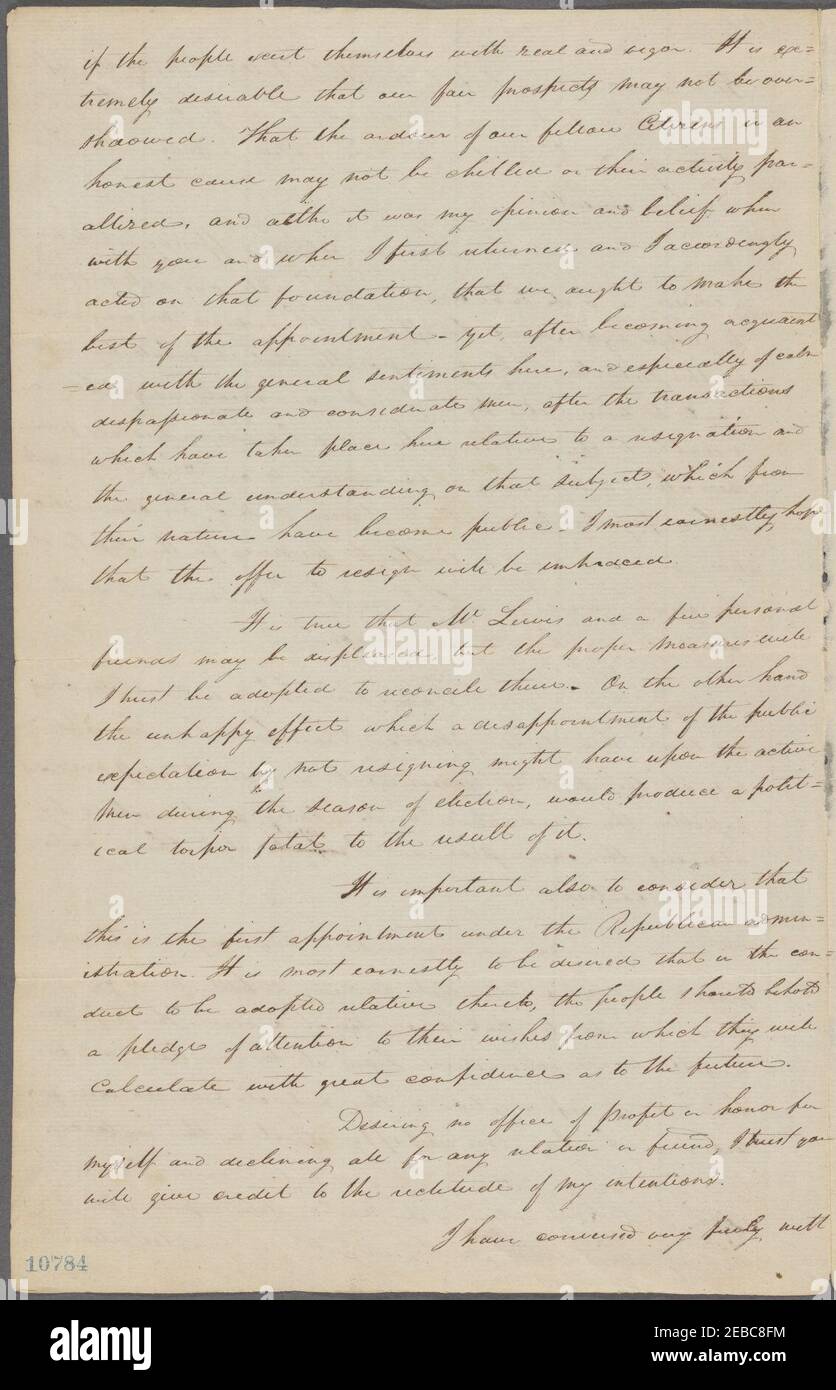 if the people exert themselves with zeal and vigor. It is ex=
tremely desirable that our fair prospects may not be over=
shadowed. That the ardour of our fellow Citizens in an
honest cause may not be chilled or their activity par=
alized, and altho it was my opinion and belief when
with you and when I first returned and I accordingly
acted on that foundation, that we ought to make the
best of the appointment - yet, after becoming acquaint
=ed with the general sentiments here, and especially of calm
dispassionate and considerate men, after the transactions
which have taken place here relative to a resignation and
the general understanding on that subject, which from
their nature have become public - I most earnestly hope
that the offer to resign will be embraced
It is true that Mr Lewis and a few personal
friends may be displeased but the proper measures will
I trust be adopted to reconcile them - On the other hand
the unhappy effect which a disappointment of the public
expectation by not resigning might have upon the active
men during the season of election, would produce a polit=
ical torpor fatal to the result of it.
It is important also to consider that
this is the first appointment under the Republican admin=
istration. It is most earnestly to be desired that in the con=
duct to be adopted relative thereto, the people should behold
a pledge of attention to their wishes from which they will
calculate with great confidence as to the future.
Desiring no office of profit or honor for
myself and declining all for any relation or friend, I trust you
will give credit to the rectitude of my intentions.
I have conversed very freely with
10784
alamy
Image ID: 2EBC8FM
www.alamy.com